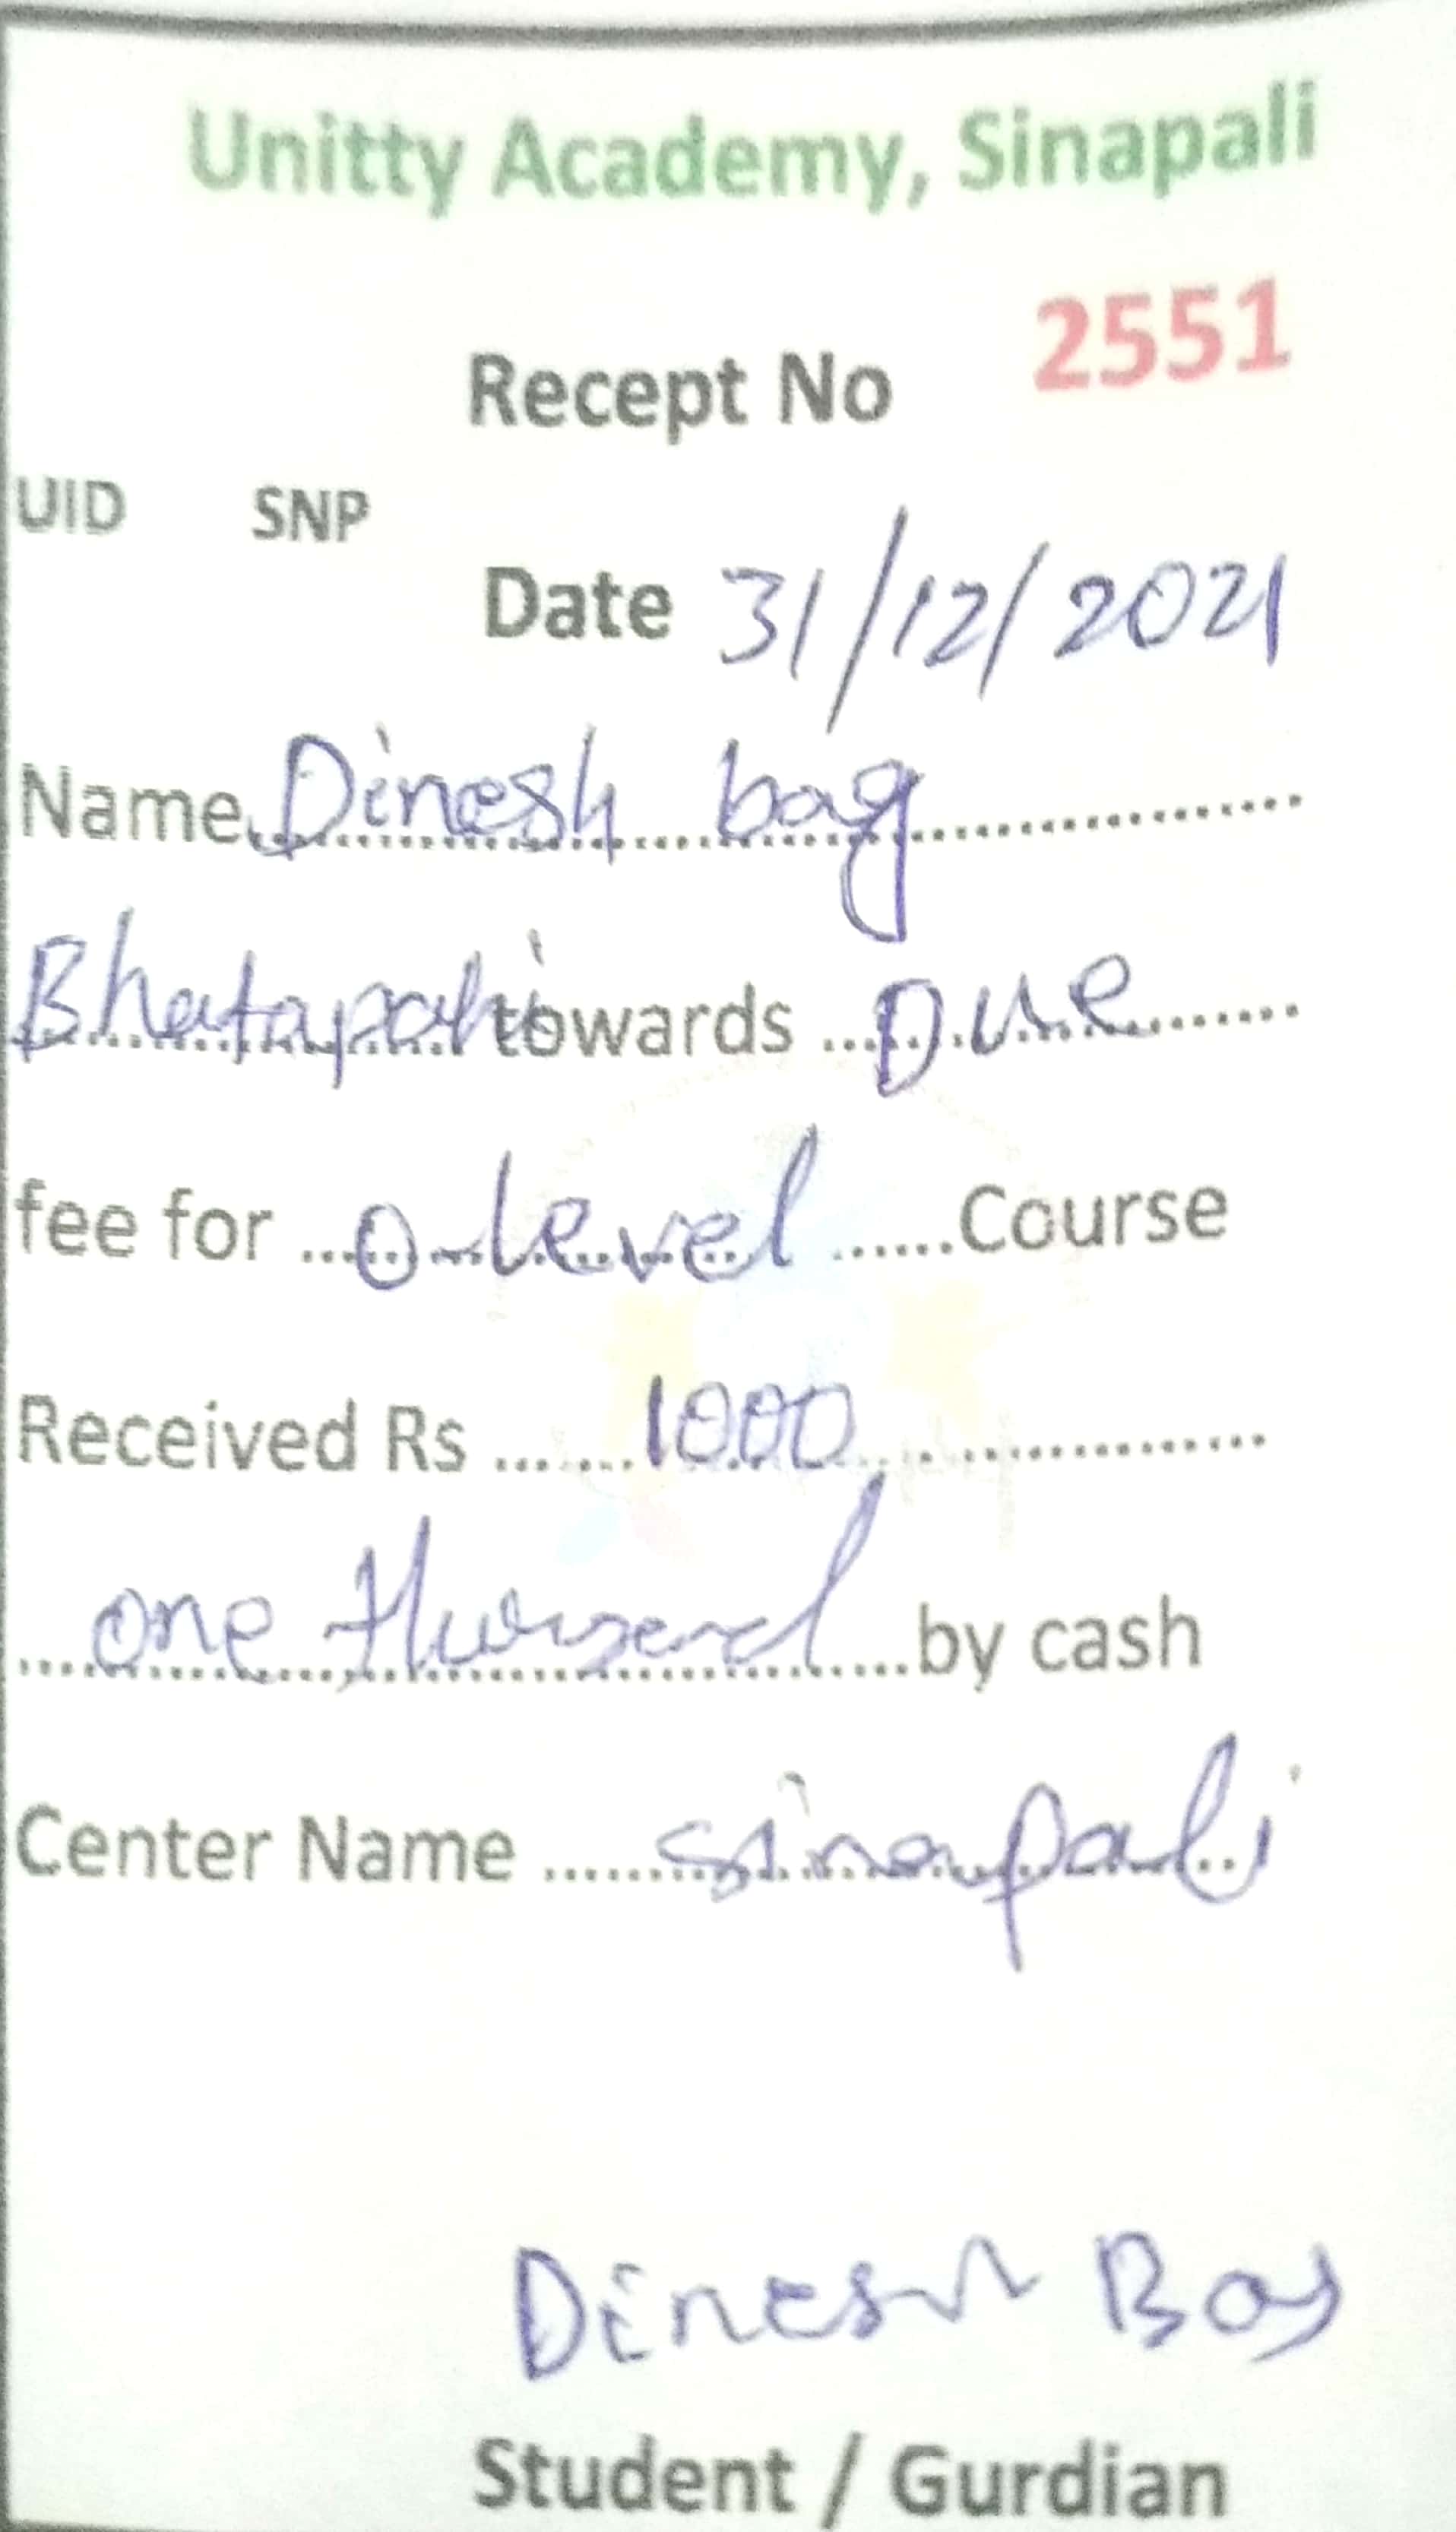 Unitty Academy, Sinapali
2551
Recept No
UID SNP
Date 31/12/2021
Name Dinesh bag
towards Due
fee for O-level Course
Received Rs 1000
one by cash
Center Name Sinapali
Dinesh Bag
Student / Gurdian